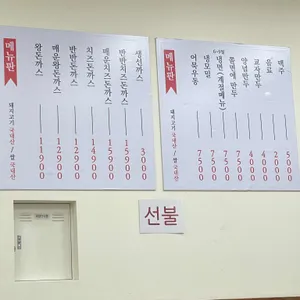 메뉴판
왕돈까스 11900
매운왕돈까스 12900
반반돈까스 12900
치즈돈까스 14900
매운치즈돈까스 15900
반반치즈돈까스 15900
생선까스 3000
돼지고기 국내산 / 쌀 국내산
메뉴판
어묵우동 7500
냉모밀 7500
냉면 (계절메뉴) 7500
쫄면에 만두 7500
양념만두 4000
교자만두 4000
음료 2000
맥주 5000
돼지고기 국내산 / 쌀 국내산
선불